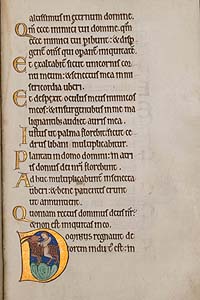 altissimus in eternum domine.
Qm ecce inimici tui domine qm
ecce inimici tui peribunt: & disp
gent̄ om̄s qui opant̄ iniquitatē.
Et exaltabit̄ sicut unicornis cor
nu meum: & senectus mea in mi
sericordia uberi.
Et despexit oculus meus inimicos
meos: & insurgentibus in me ma
lignantibus audiet auris mea.
Iustus ut palma florebit: sicut ce
drus libani multiplicabitur.
Plantati in domo domini: in atri
is domus dei nr̄i florebunt.
Adhuc multiplicabunt̄ in senecta
uberi: & bene patientes erunt
ut annuntient.
Quoniam rectus dominus deus nr̄:
& non est iniquitas in eo.
Dominus regnauit de
corem indut̄ est: in